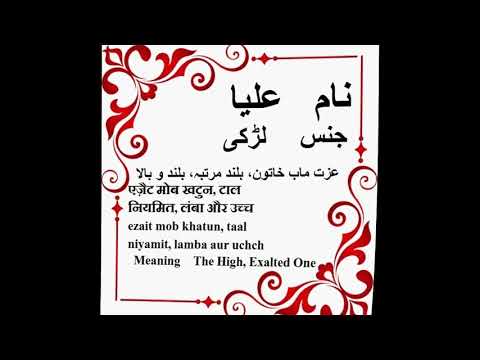 نام علیا
جنس لڑکی
عزت ماب خاتون، بلند مرتبہ، بلند و بالا
एज़ैट मोब खटुन, टाल
नियमित, लंबा और उच्च
ezait mob khatun, taal
niyamit, lamba aur uchch
Meaning The High, Exalted One